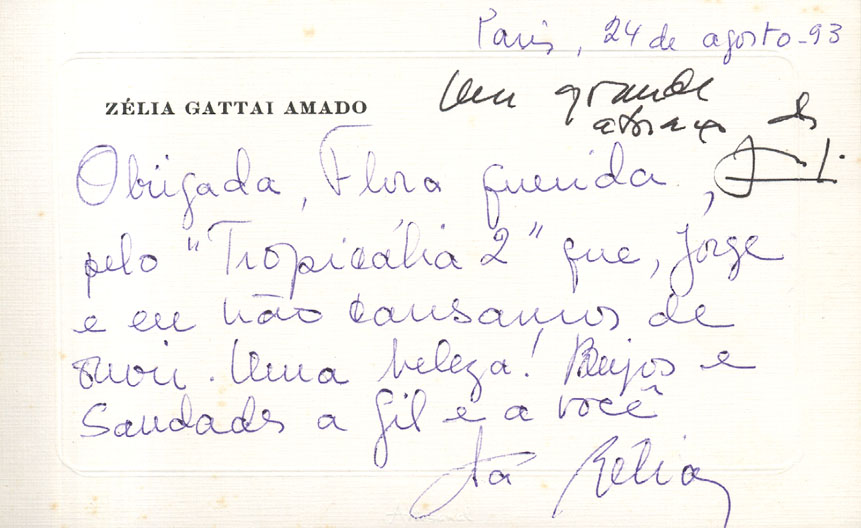 Paris, 24 de agosto-93
ZÉLIA GATTAI AMADO
Um grande
abraço do
Obrigada, Flora querida,
pelo "Tropicália 2" que, Jorge
e eu não cansamos de
ouvir. Uma beleza! Beijos e
Saudades a Gil e a você
da Zélia